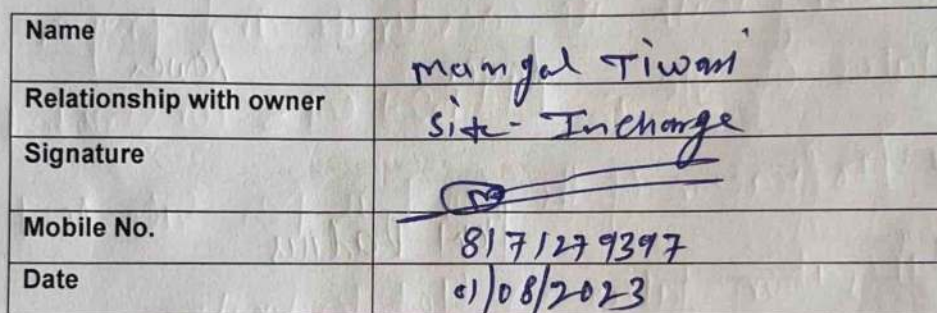 Name mangal Tiwari
Relationship with owner Site-Incharge
Signature
Mobile No. 8171279397
Date 01/08/2023